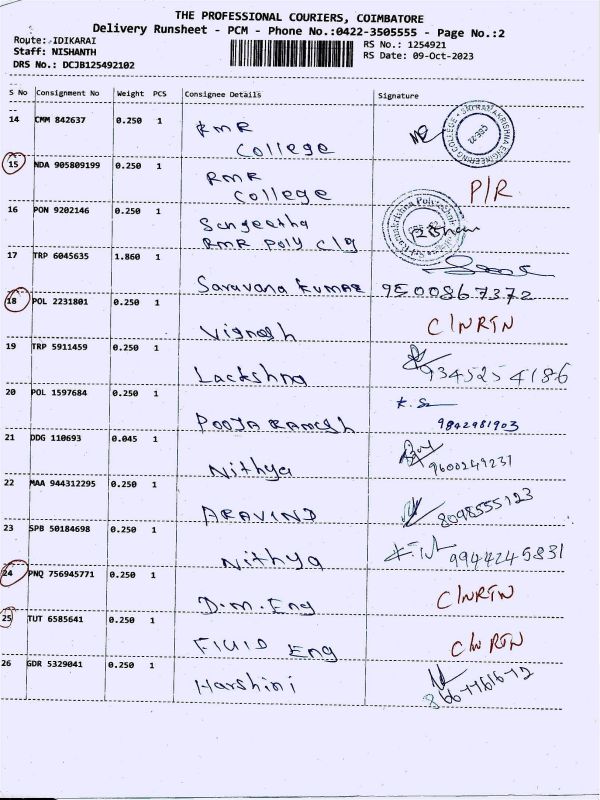 THE PROFESSIONAL COURIERS, COIMBATORE
Delivery Runsheet - PCM - Phone No.:0422-3505555 - Page No.:2
Route: IDIKARAI
RS No.: 1254921
Staff: NISHANTH
RS Date: 09-Oct-2023
DRS No.: DCJB125492102
S No Consignment No Weight PCS Consignee Details Signature
14 CMM 842637 0.250 1 RMR College
SRI RAMAKRISHNA ENGINEERING COLLEGE
15 NDA 905809199 0.250 1 RMR College P/R
16 PON 9202146 0.250 1 Sangeetha RMR Poly Clg
17 TRP 6045635 1.860 1 Saravana Kumar 9500867372
18 POL 2231801 0.250 1 Vignesh C/NRTN
19 TRP 5911459 0.250 1 Lackshna 9345254186
20 POL 1597684 0.250 1 Pooja Ramesh 9842981903
21 DDG 110693 0.045 1 Nithya 9600249231
22 MAA 944312295 0.250 1 ARAVIND 8098555123
23 SPB 50184698 0.250 1 Nithya 9944245831
24 PNQ 756945771 0.250 1 D.M.Eng C/NRTN
25 TUT 6585641 0.250 1 FIUID Eng C/NRTN
26 GDR 5329041 0.250 1 Harshini